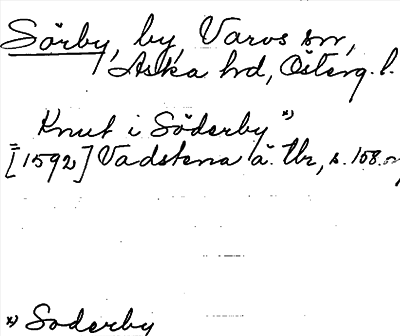 Sörby, by, Varvs sn,
Aska hd, Österg. l.
Knut i Söderby x)
= [1592] Vadstena ä. tb, s. 158.
x) Soderby